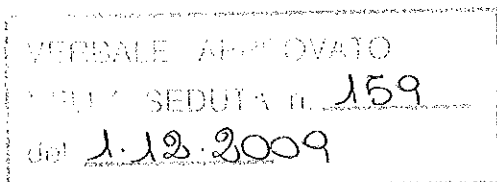 VERBALE APPROVATO
NELLA SEDUTA n. 159
del 1.12.2009